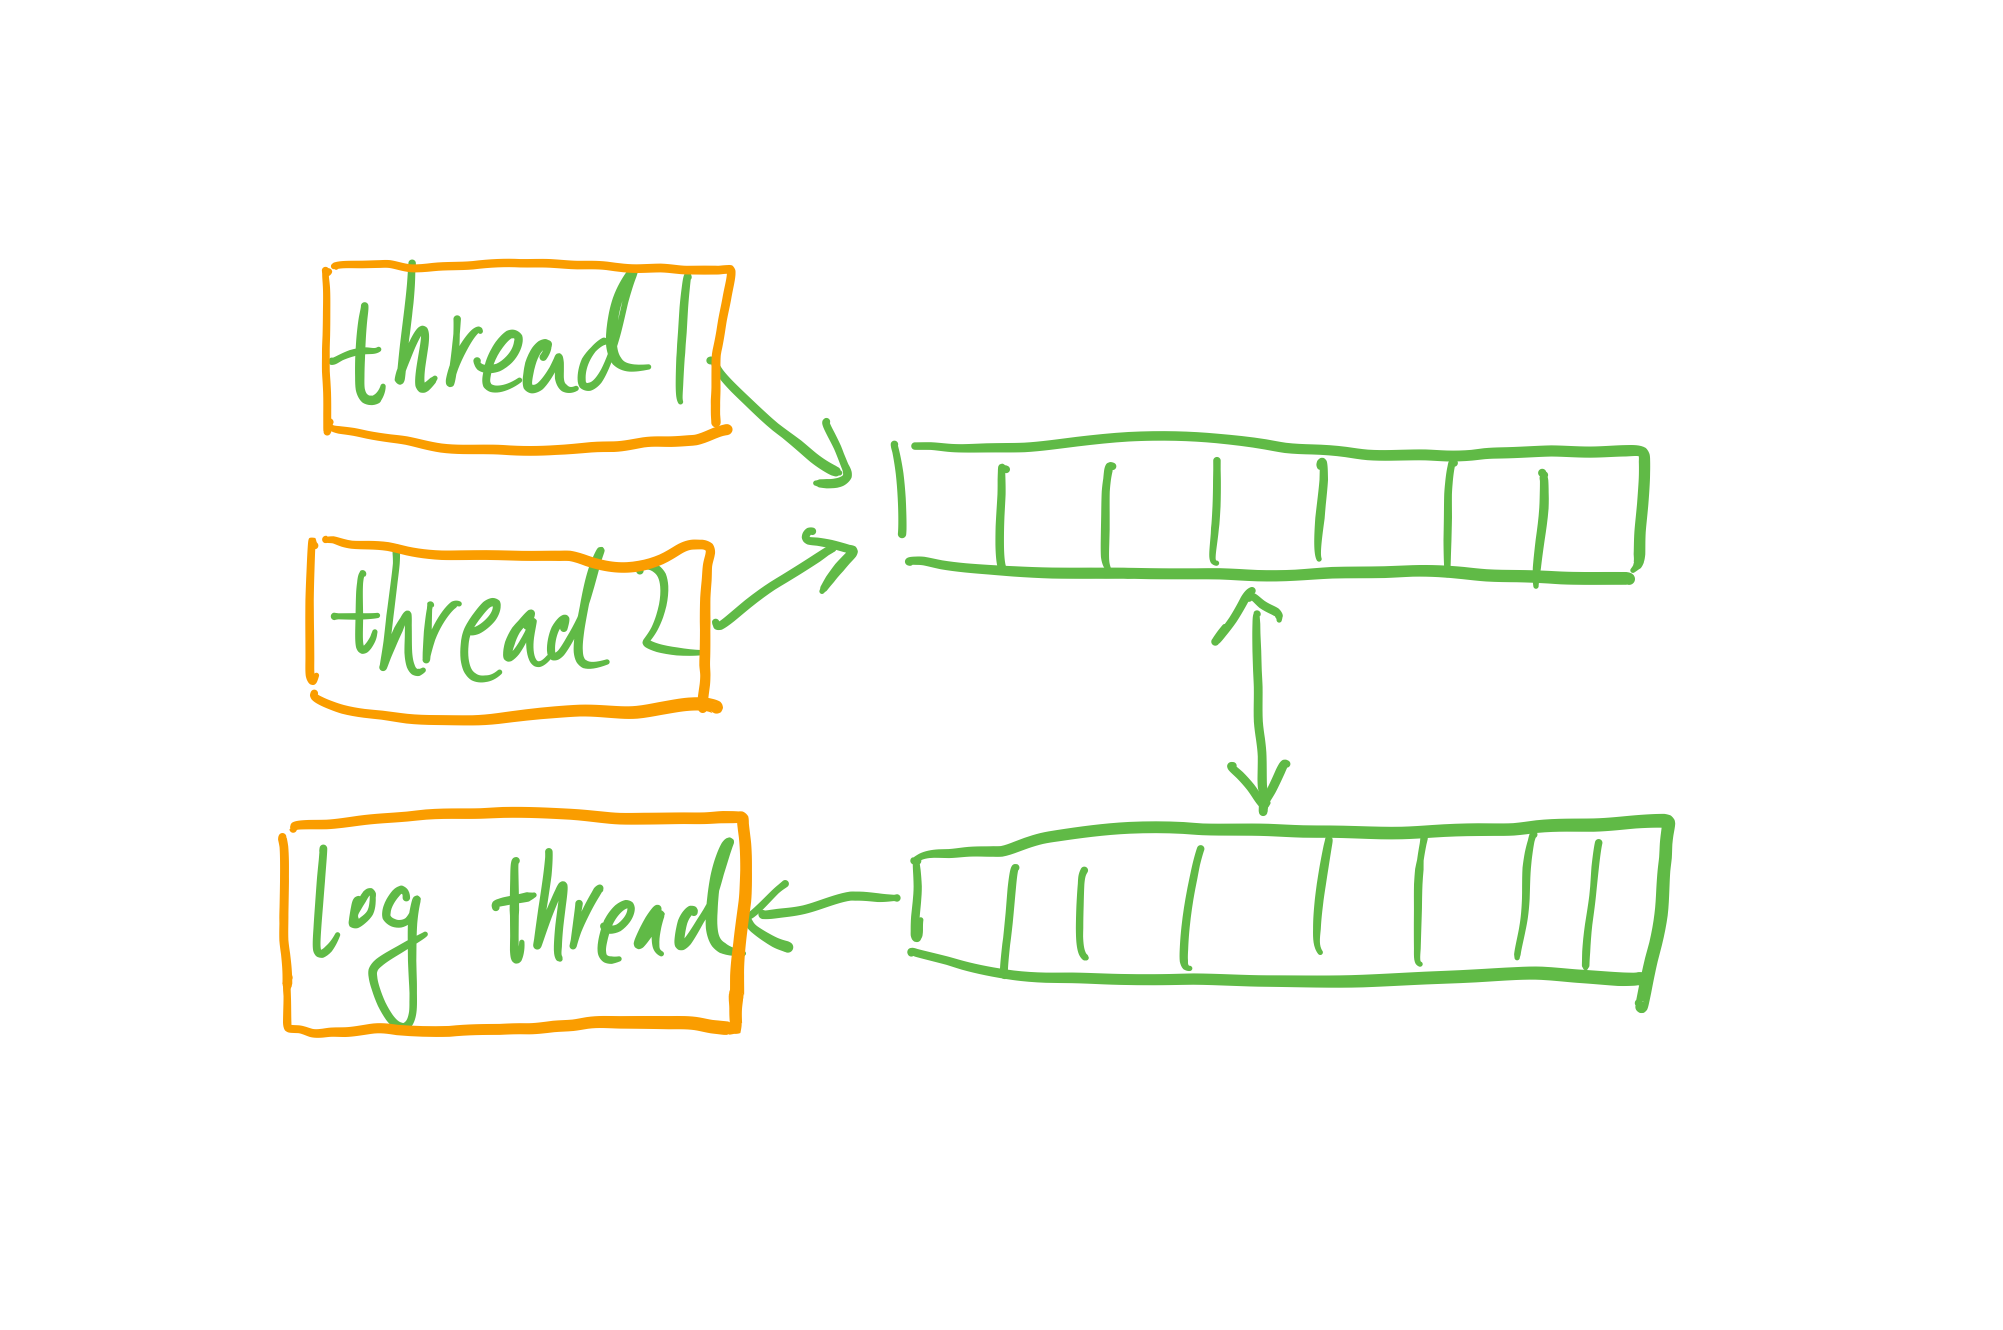 thread 1
thread 2
log thread